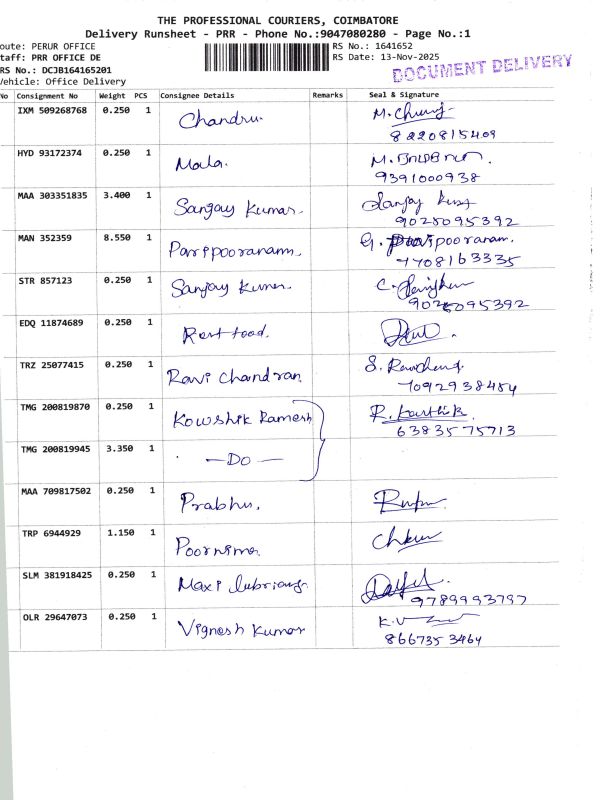 THE PROFESSIONAL COURIERS, COIMBATORE
Delivery Runsheet - PRR - Phone No.:9047080280 - Page No.:1
oute: PERUR OFFICE
RS No.: 1641652
taff: PRR OFFICE DE
RS Date: 13-Nov-2025
RS No.: DCJB164165201
DOCUMENT DELIVERY
Vehicle: Office Delivery
No Consignment No Weight PCS Consignee Details Remarks Seal & Signature
IXM 509268768 0.250 1 Chandru.
8220815409
HYD 93172374 0.250 1 Mala.
9391000938
MAA 303351835 3.400 1 Sanjay Kumar. Sanjay
9025095392
MAN 352359 8.550 1 Paripooranam. G. Paripooranam.
7708163335
STR 857123 0.250 1 Sanjay Kumar.
9025095392
EDQ 11874689 0.250 1 Rest food.
TRZ 25077415 0.250 1 Ravi Chandran
7092938484
TMG 200819870 0.250 1 Kowshik Ramesh R. Karthik.
6383575713
TMG 200819945 3.350 1 — Do —
MAA 709817502 0.250 1 Prabhu.
TRP 6944929 1.150 1 Poornima.
SLM 381918425 0.250 1 Maxi
9789993797
OLR 29647073 0.250 1 Vignesh Kumar
866735 3464